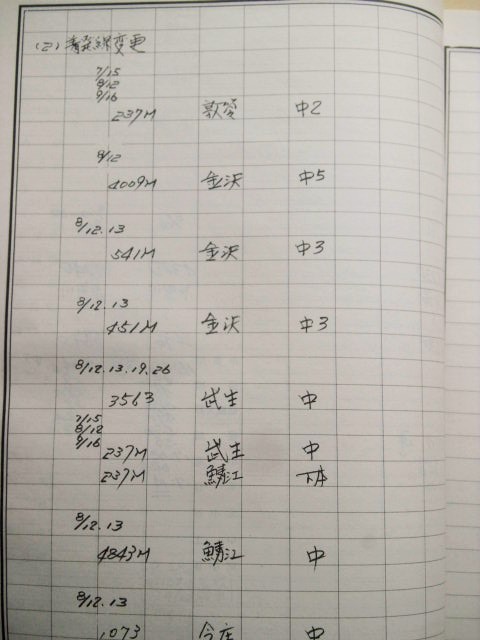 (2) 着発線変更
7/15
8/12
9/16
237M 敦賀 中2
8/12
4009M 金沢 中5
8/12.13
541M 金沢 中3
8/12.13
451M 金沢 中3
8/12.13.19.26
3563 武生 中
7/15
8/12
9/16
237M 武生 中
237M 鯖江 下本
8/12.13
4843M 鯖江 中
8/12.13
1073 今庄 中